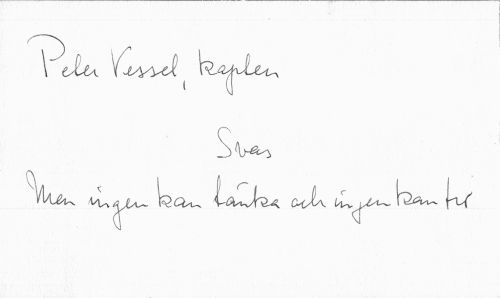 Peter Vessel, kapten
Svar
Men ingen kan tänka och ingen kan tro